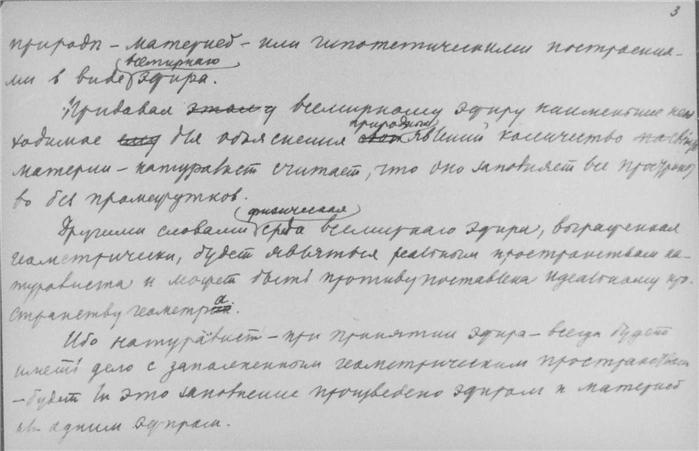 3
природы – материей – или гипотетическими построения-
ми в виде всемирного эфира.
Придавая этому всемирному эфиру наименьшее необ
ходимое для объяснения природных явлений количество
материи – натуралист считает, что оно заполняет все пространст
во без промежутков.
Другими словами физическая среда всемирного эфира, выраженная
геометрически, будет являться реальным пространством на-
туралиста и может быть противупоставлена идеальному про
странству геометра.
Ибо натуралист – при принятии эфира – всегда будет
иметь дело с заполненным геометрическим пространством
– будет ли это заполнение произведено эфиром и материей
одним эфиром.